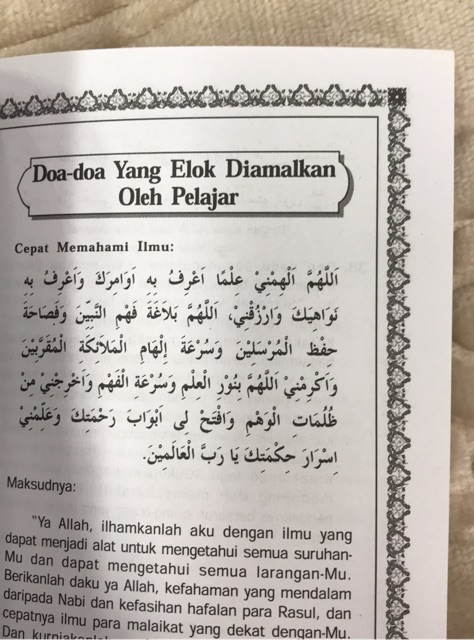 Doa-doa Yang Elok Diamalkan
Oleh Pelajar
Cepat Memahami Ilmu:
اَللّٰهُمَّ اَلْهِمْنِيْ عِلْمًا اَعْرِفُ بِهِ اَوَامِرَكَ وَاَعْرِفُ بِهِ
نَوَاهِيَكَ وَارْزُقْنِيْ، اَللّٰهُمَّ بَلَاغَةَ فَهْمِ النَّبِيِّنَ وَفَصَاحَةَ
حِفْظِ الْمُرْسَلِيْنَ وَسُرْعَةَ اِلْهَامِ الْمَلَائِكَةِ الْمُقَرَّبِيْنَ
وَاَكْرِمْنِيْ اَللّٰهُمَّ بِنُوْرِ الْعِلْمِ وَسُرْعَةِ الْفَهْمِ وَاَخْرِجْنِيْ مِنْ
ظُلُمَاتِ الْوَهْمِ وَافْتَحْ لِى اَبْوَابَ رَحْمَتِكَ وَعَلِّمْنِيْ
اِسْرَارَ حِكْمَتِكَ يَا رَبَّ الْعَالَمِيْنَ.
Maksudnya:
"Ya Allah, ilhamkanlah aku dengan ilmu yang
dapat menjadi alat untuk mengetahui semua suruhan-
Mu dan dapat mengetahui semua larangan-Mu.
Berikanlah daku ya Allah, kefahaman yang mendalam
daripada Nabi dan kefasihan hafalan para Rasul, dan
cepatnya ilmu para malaikat yang dekat dengan-Mu.
Dan kurniakanlah